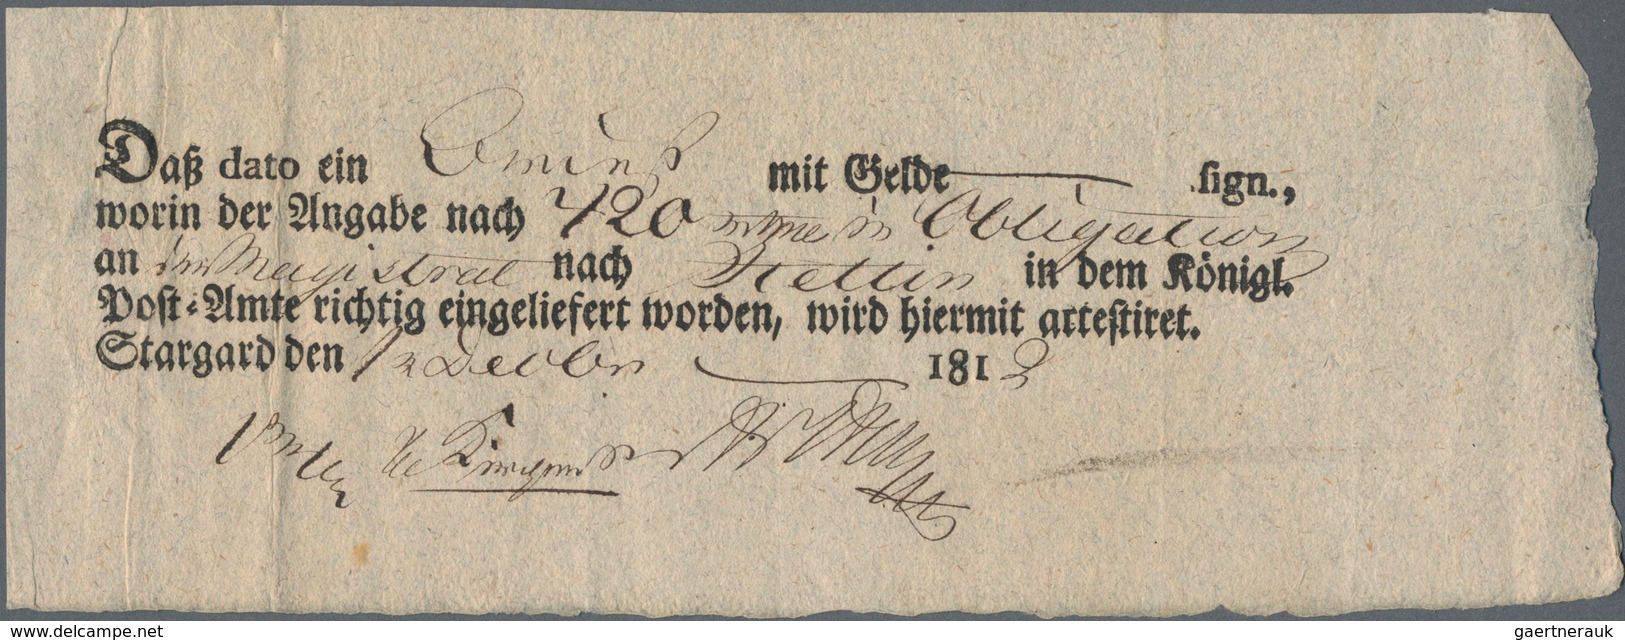 Daß dato ein Brief mit Gelde sign.,
worin der Angabe nach 420 in Obligation
an Magistrat nach Stettin in dem Königl.
Post-Amte richtig eingeliefert worden, wird hiermit attestiret.
Stargard den 12 Decbr 1812
delcampe.net
gaertnerauk